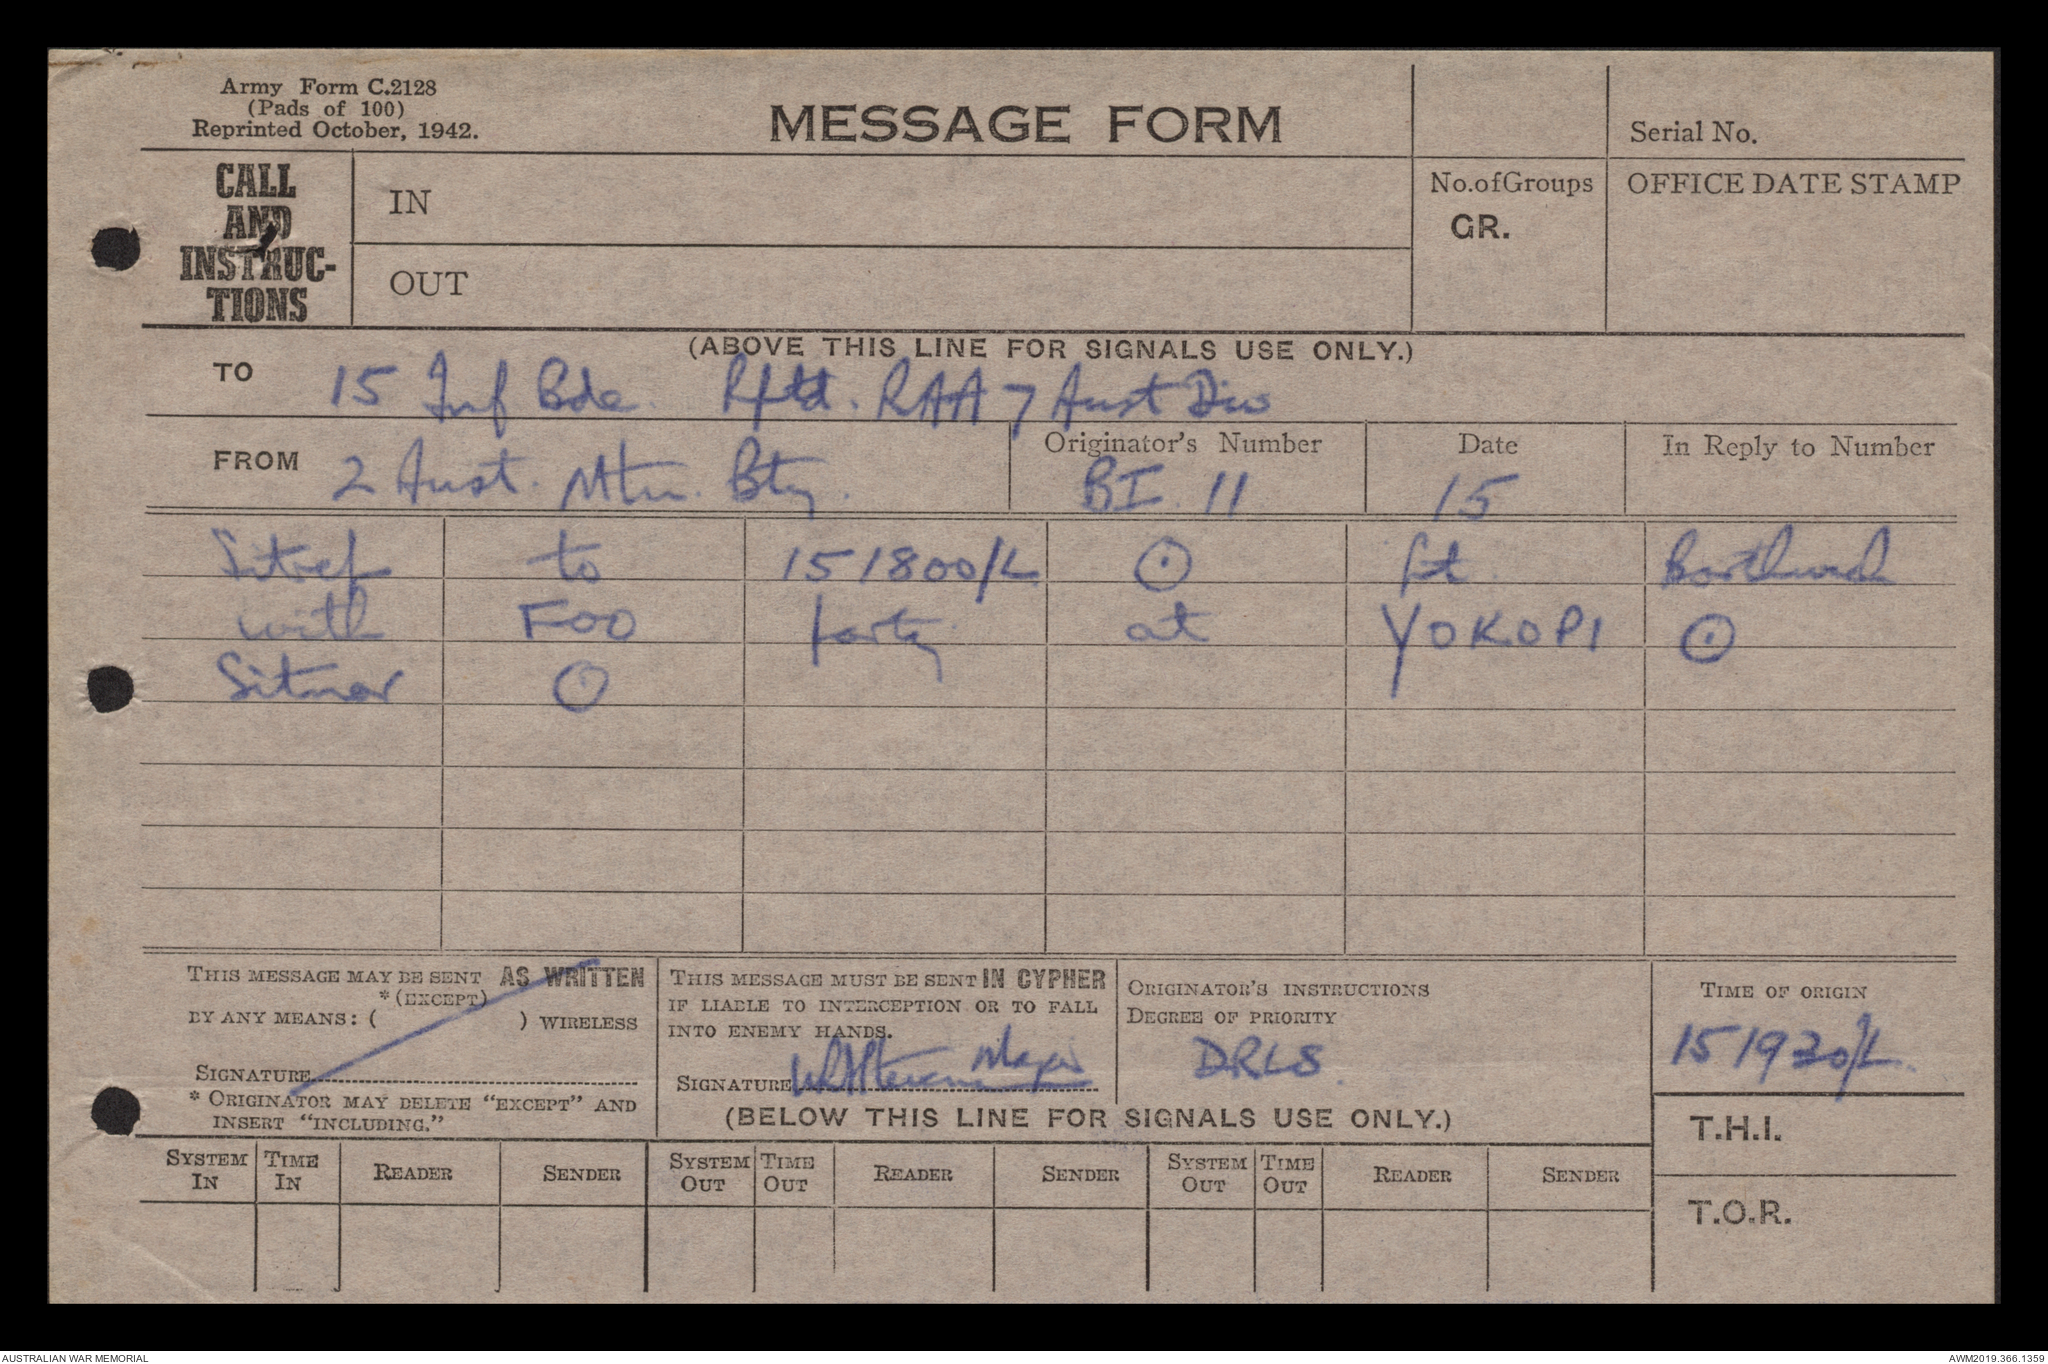 Army Form C.2128
(Pads of 100)
Reprinted October, 1942.
MESSAGE FORM
Serial No.
CALL AND INSTRUC-TIONS
IN
OUT
No. of Groups
GR.
OFFICE DATE STAMP
(ABOVE THIS LINE FOR SIGNALS USE ONLY.)
TO 15 Inf Bde. Rptd. RAA 7 Aust Div
FROM 2 Aust. Mtn. Bty.
Originator's Number BI. 11
Date 15
In Reply to Number
Sitrep to 151800/L ⊙ Lt. Borthwick
with FOO party at YOKOPI ⊙
Sitnor ⊙
THIS MESSAGE MAY BE SENT AS WRITTEN
* (EXCEPT)
BY ANY MEANS: ( ) WIRELESS
SIGNATURE
* ORIGINATOR MAY DELETE "EXCEPT" AND
INSERT "INCLUDING."
THIS MESSAGE MUST BE SENT IN CYPHER
IF LIABLE TO INTERCEPTION OR TO FALL
INTO ENEMY HANDS.
SIGNATURE Major
ORIGINATOR'S INSTRUCTIONS
DEGREE OF PRIORITY
DRLS
TIME OF ORIGIN
151930/L.
T.H.I.
T.O.R.
(BELOW THIS LINE FOR SIGNALS USE ONLY.)
SYSTEM IN TIME IN READER SENDER SYSTEM OUT TIME OUT READER SENDER SYSTEM OUT TIME OUT READER SENDER
AUSTRALIAN WAR MEMORIAL
AWM2019.366.1359